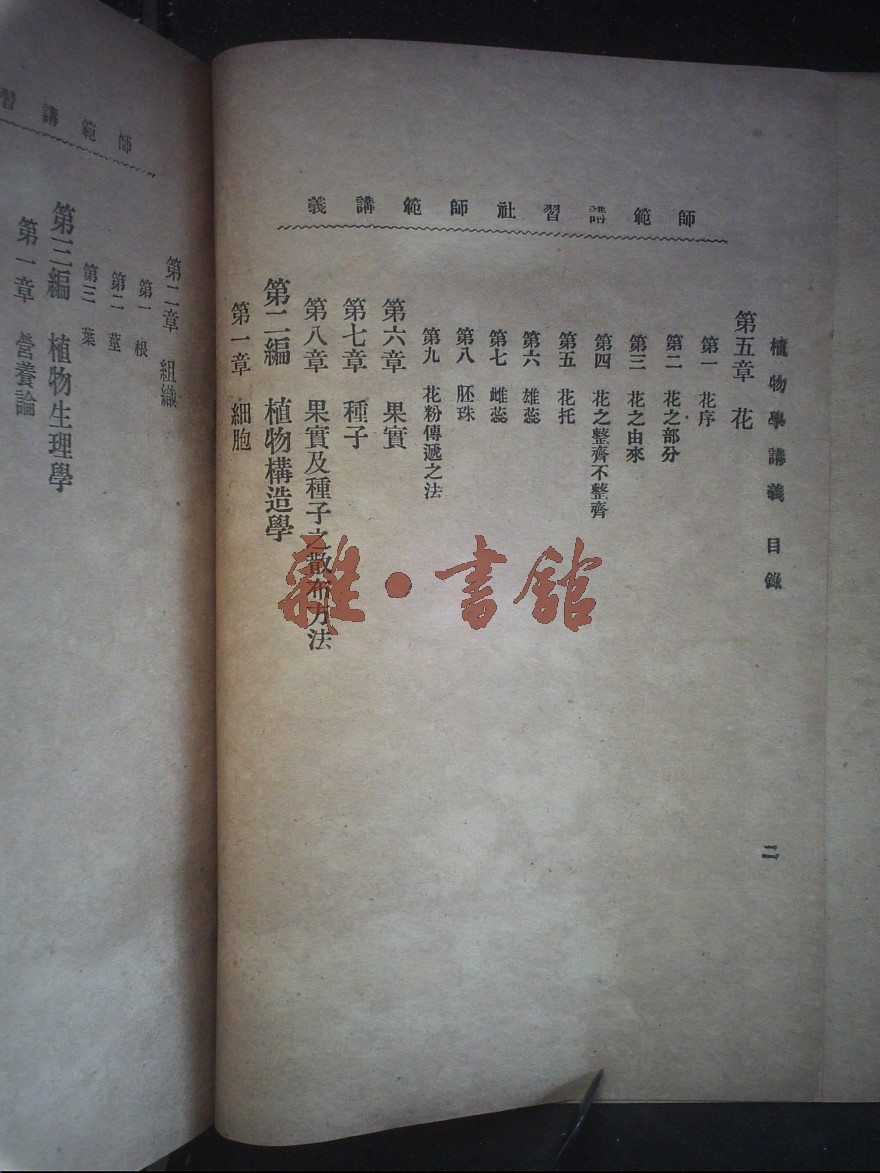 師範講習社師範講義
植物學講義 目錄
二
第五章 花
第一 花序
第二 花之部分
第三 花之由來
第四 花之整齊不整齊
第五 花托
第六 雄蕊
第七 雌蕊
第八 胚珠
第九 花粉傳遞之法
第六章 果實
第七章 種子
第八章 果實及種子之散布方法
第二編 植物構造學
第一章 細胞
師範講習
第二章 組織
第一 根
第二 莖
第三 葉
第三編 植物生理學
第一章 營養論
雜·書館